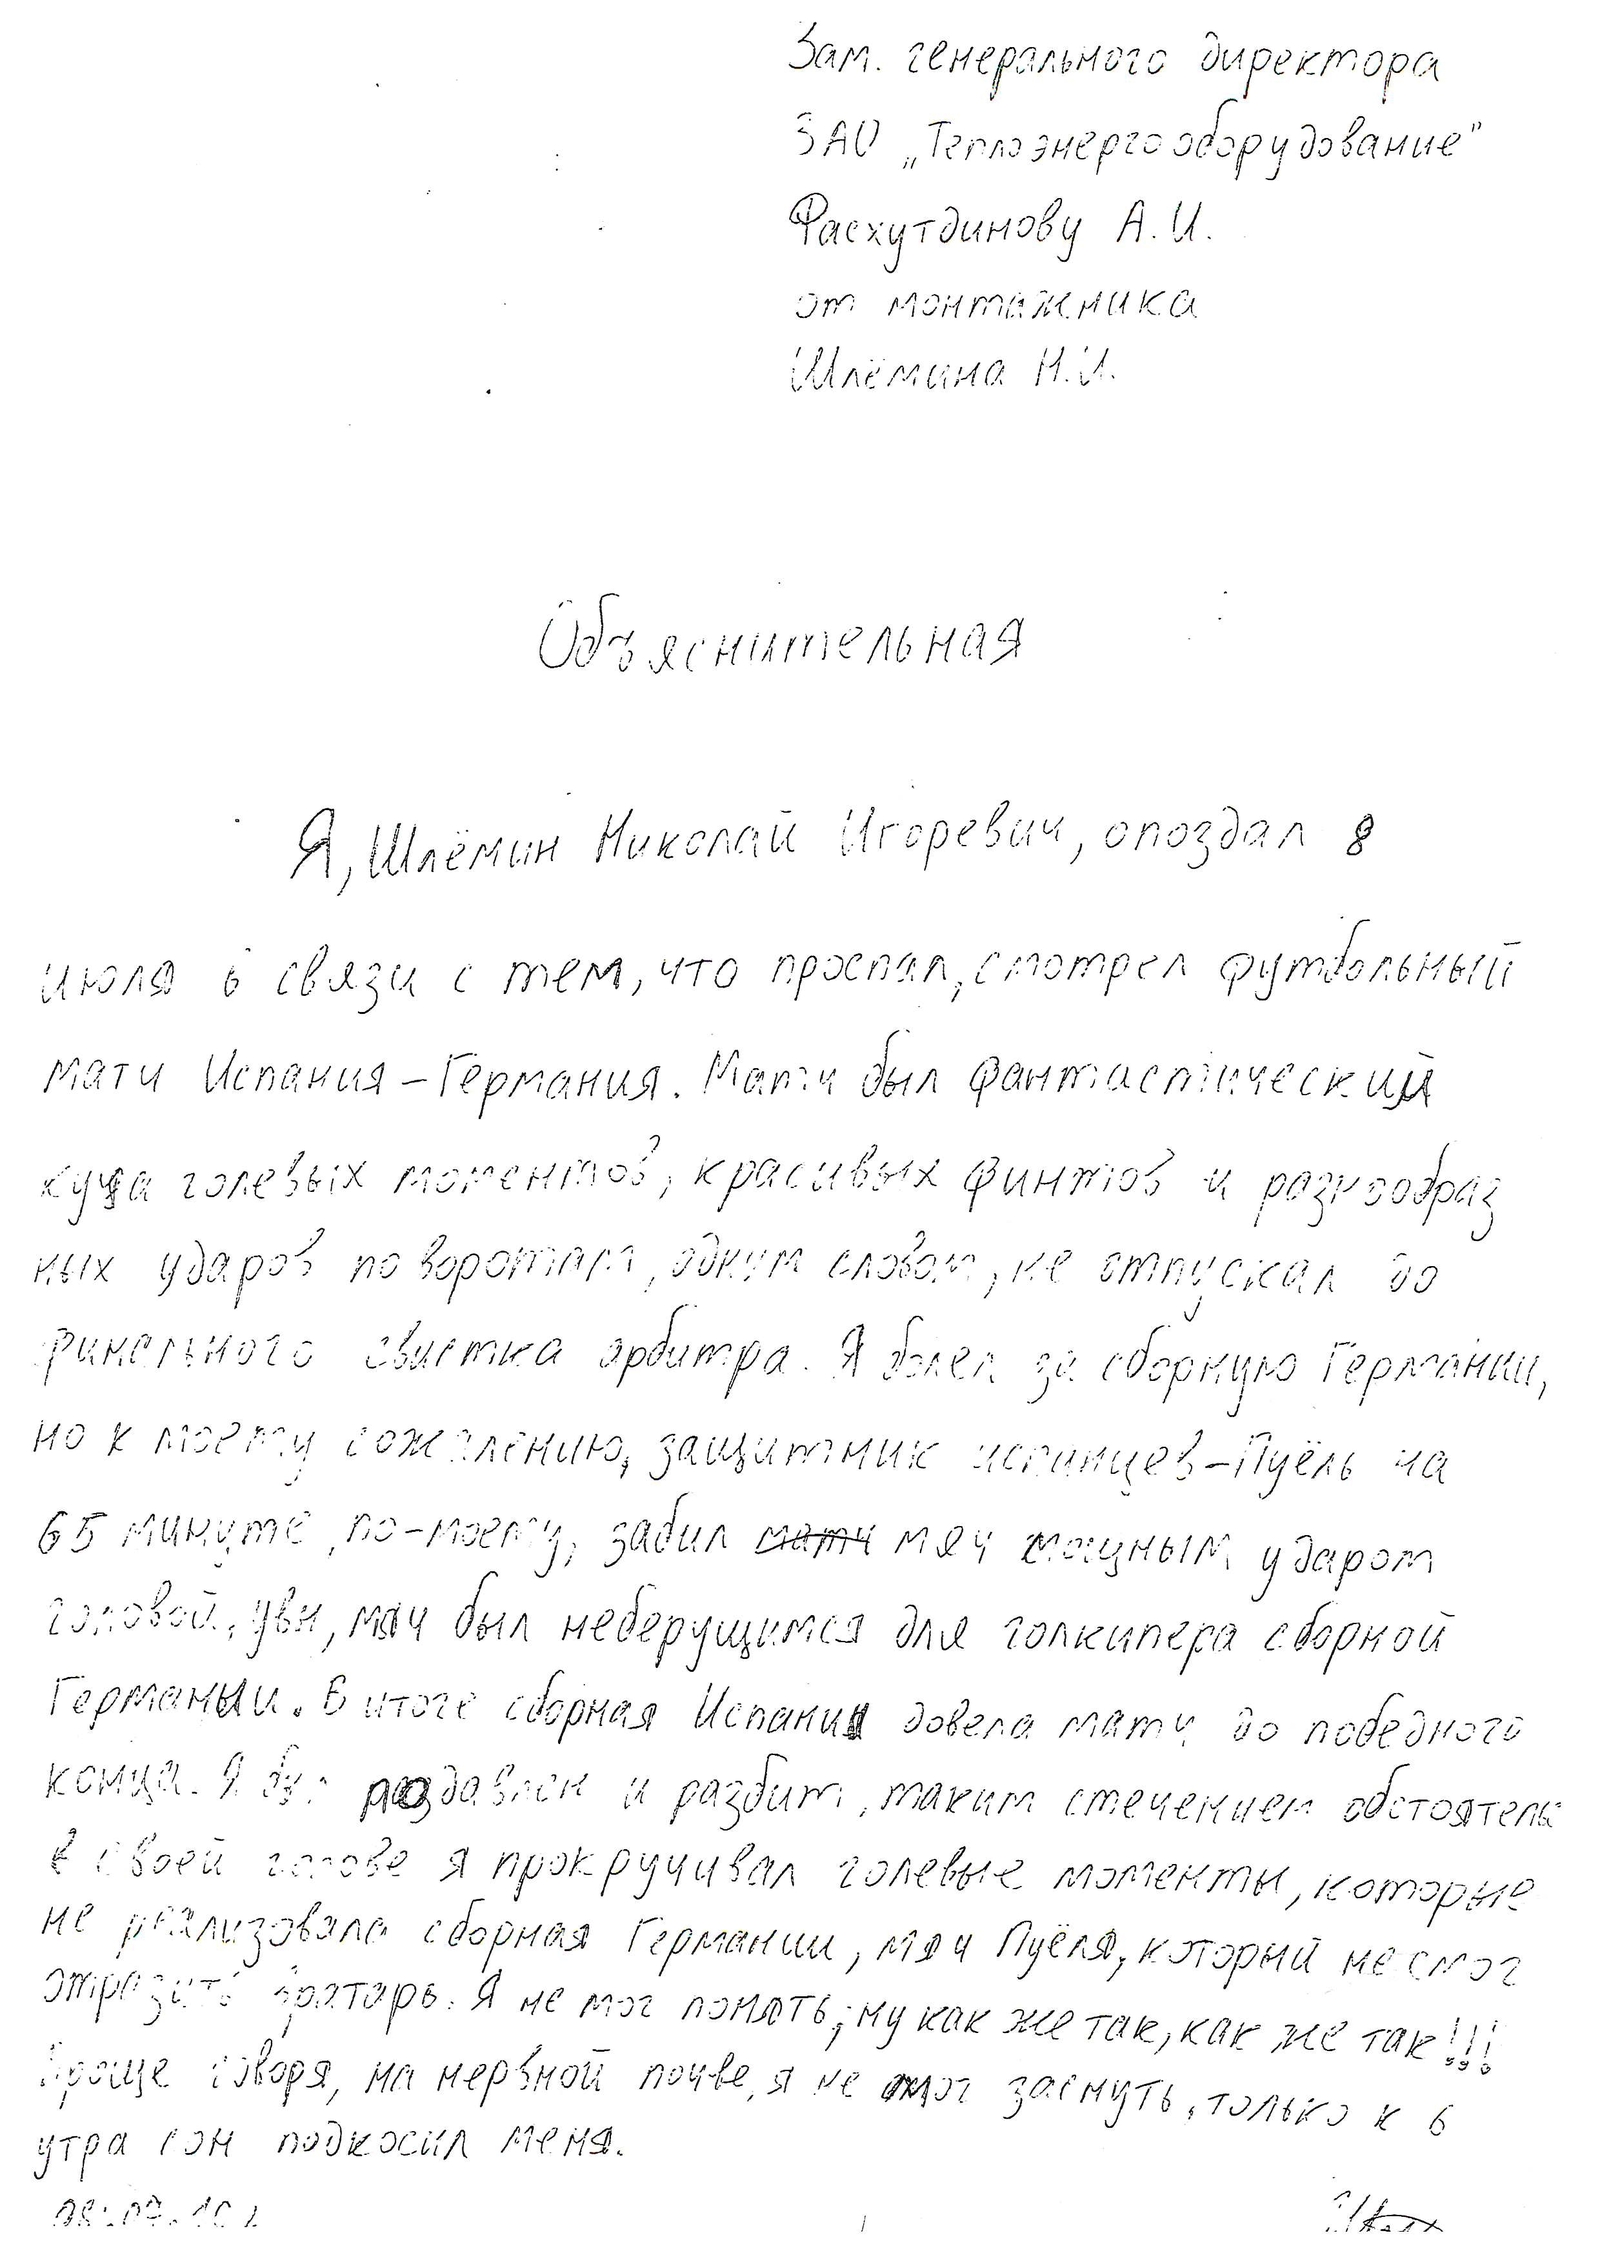 Зам. генерального директора
ЗАО „Теплоэнергооборудование"
Фасхутдинову А.И.
от монтажника
Шлёмина Н.И.
Объяснительная
Я, Шлёмин Николай Игоревич, опоздал 8
июля в связи с тем, что проспал, смотрел футбольный
матч Испания-Германия. Матч был фантастический
куча голевых моментов, красивых финтов и разнообраз
ных ударов по воротам, одним словом, не отпускал до
финального свистка арбитра. Я болел за сборную Германии,
но к моему сожалению, защитник испанцев-Пуёль на
65 минуте, по-моему, забил матч мяч мощным ударом
головой, увы, мяч был неберущимся для голкипера сборной
Германии. В итоге сборная Испании довела матч до победного
конца. Я был раздавлен и разбит, таким стечением обстоятель
в своей голове я прокручивал голевые моменты, которые
не реализовала сборная Германии, мяч Пуёля, который не смог
отразить вратарь. Я не мог понять, ну как же так, как же так!!!
Проще говоря, на нервной почве, я не мог заснуть, только к 6
утра сон подкосил меня.
08.07.10 г